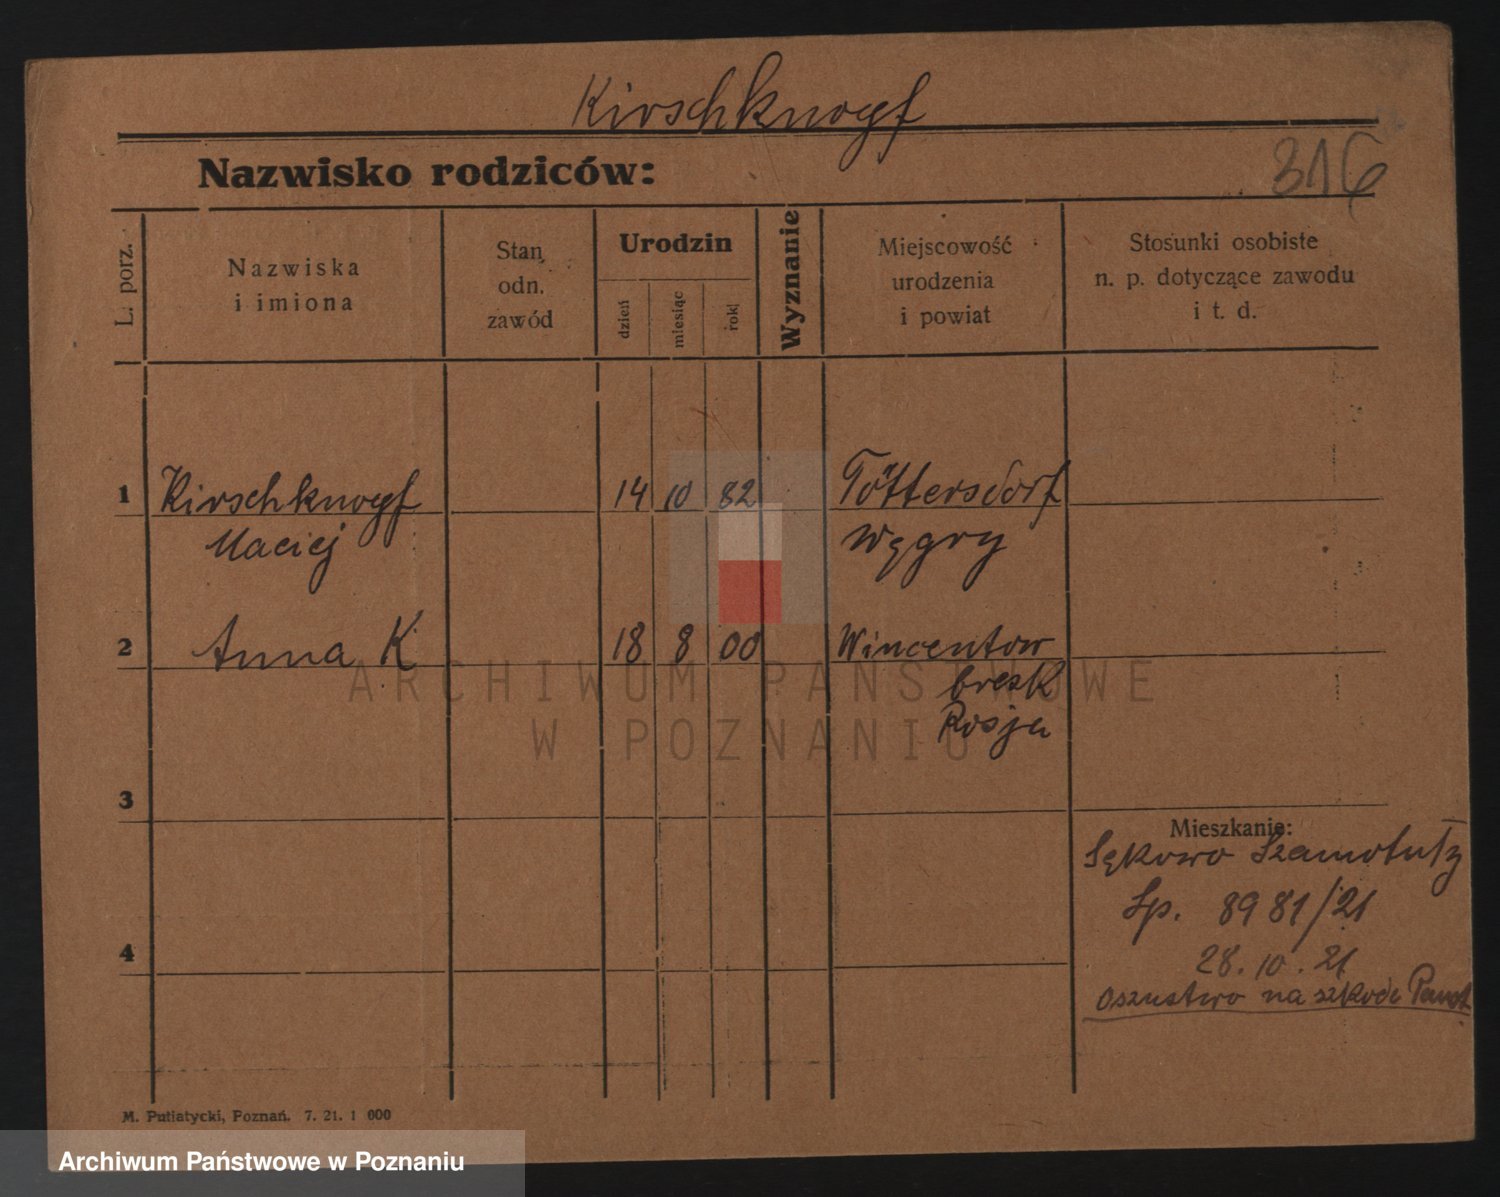 Kirschknopf
Nazwisko rodziców:
316
L. porz.
Nazwiska
i imiona
Stan
odn.
zawód
Urodzin
dzień
miesiąc
rok
Wyznanie
Miejscowość
urodzenia
i powiat
Stosunki osobiste
n. p. dotyczące zawodu
i t. d.
1 Kirschknopf 14 10 82 Töttersdorf
Maciej Węgry
2 Anna K 18 8 00 Wincentow
bresk
Rosja
3
Mieszkanie:
Sękowo Szamotuły
Sp. 8981/21
4
28.10.21
oszustwo na szkodę Państ
M. Putiatycki, Poznań. 7. 21. 1 000
ARCHIWUM PAŃSTWOWE
W POZNANIU
Archiwum Państwowe w Poznaniu